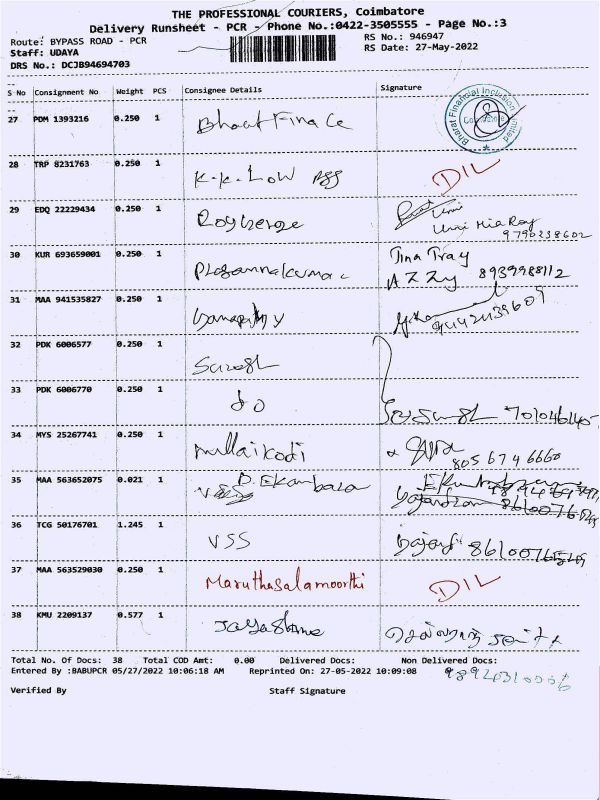 THE PROFESSIONAL COURIERS, Coimbatore
Delivery Runsheet - PCR - Phone No.:0422-3505555 - Page No.:3
Route: BYPASS ROAD - PCR RS No.: 946947
Staff: UDAYA RS Date: 27-May-2022
DRS No.: DCJB94694703
S No Consignment No Weight PCS Consignee Details Signature
27 PDM 1393216 0.250 1 Bharat Finace
Bharat Financial Inclusion Limited
28 TRP 8231763 0.250 1 K.K. LOW DIL
29 EDQ 22229434 0.250 1
9790238602
30 KUR 693659001 0.250 1 Prasannakumar Tina Tray
8939988112
31 MAA 941535827 0.250 1
32 PDK 6006577 0.250 1 Suresh
33 PDK 6006770 0.250 1 do
34 MYS 25267741 0.250 1 mullaikodi
805 674 6660
35 MAA 563652075 0.021 1 D. Ekambara
36 TCG 50176701 1.245 1 VSS
37 MAA 563529030 0.250 1 Maruthasalamoorthi DIL
38 KMU 2209137 0.577 1
Total No. Of Docs: 38 Total COD Amt: 0.00 Delivered Docs: Non Delivered Docs:
Entered By :BABUPCR 05/27/2022 10:06:18 AM Reprinted On: 27-05-2022 10:09:08
Verified By Staff Signature